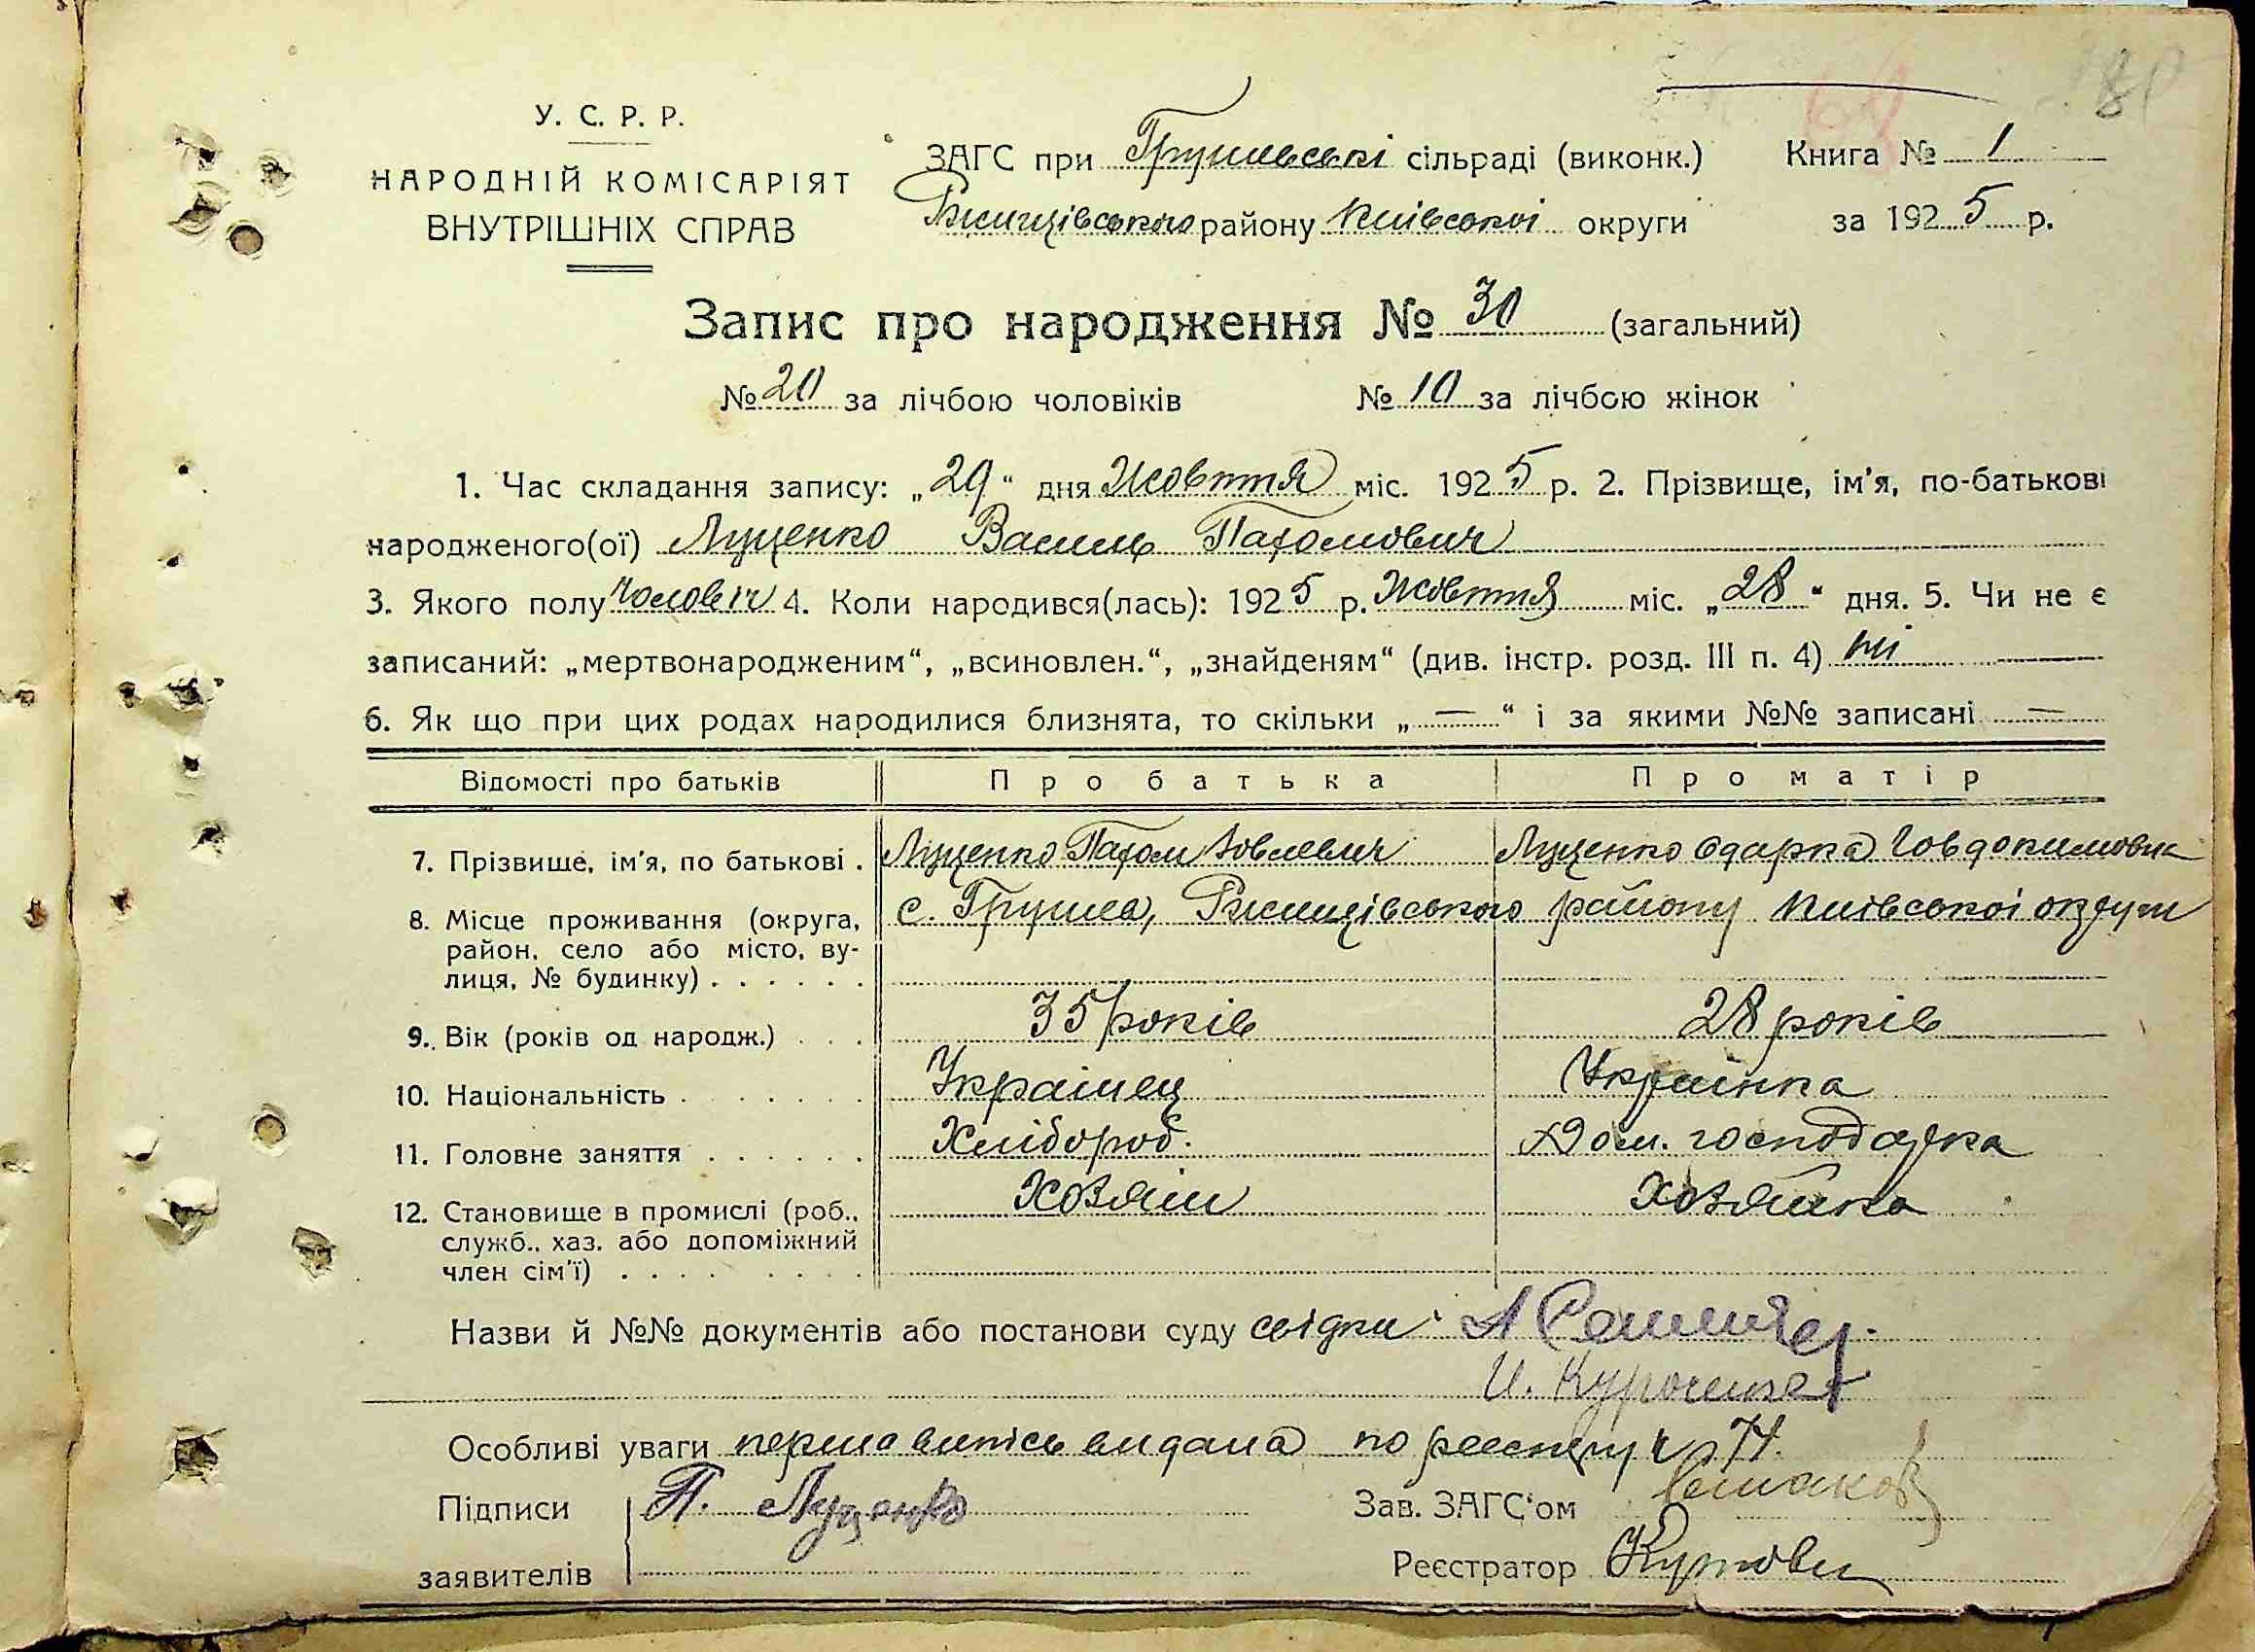 У. С. Р. Р.
НАРОДНІЙ КОМІСАРІЯТ
ВНУТРІШНІХ СПРАВ
81
ЗАГС при Грушевські сільраді (виконк.) Книга № 1
Ржищівського району Київської округи за 1925 р.
Запис про народження № 30 (загальний)
№ 20 за лічбою чоловіків № 10 за лічбою жінок
1. Час складання запису: „29“ дня Жовтня міс. 1925 р. 2. Прізвище, ім'я, по-батькові
народженого(ої) Луценко Василь Пахомович
3. Якого полу чоловіч 4. Коли народився(лась): 1925 р. Жовтня міс. „28“ дня. 5. Чи не є
записаний: „мертвонародженим“, „всиновлен.“, „знайденям“ (див. інстр. розд. III п. 4) ні
6. Як що при цих родах народилися близнята, то скільки „—“ і за якими №№ записані —
Відомості про батьків Про батька Про матір
7. Прізвище, ім'я, по батькові . Луценко Пахом Іовлевич Луценко Одарка Говдокимовна
8. Місце проживання (округа, с. Груше́в, Ржищівського району Київської округи
район, село або місто, ву-
лиця, № будинку) . . . . . .
9. Вік (років од народж.) . . . 35 років 28 років
10. Національність . . . . . . . Українец Українка
11. Головне заняття . . . . . . Хлібороб. Дом. господарка
12. Становище в промислі (роб., Хозяін Хозяйка
служб., хаз. або допоміжний
член сім'ї) . . . . . . . .
Назви й №№ документів або постанови суду свідки: А
И.
Особливі уваги перша випись видана по реєстру ч 74.
Підписи П. Луценко Зав. ЗАГС'ом
заявителів Реєстратор